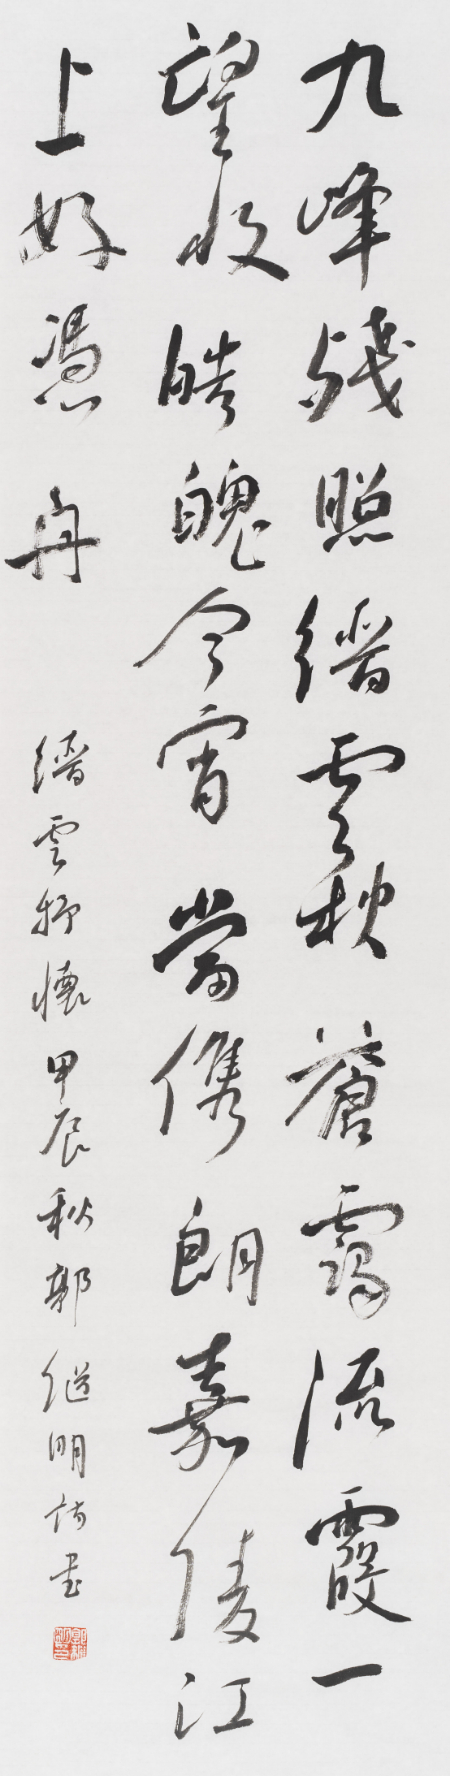 九峰残照缙云秋苍霭流霞一
望收皓魄今宵当俊朗嘉陵江
上好凭舟
缙云抒怀甲辰秋郭继明诗书